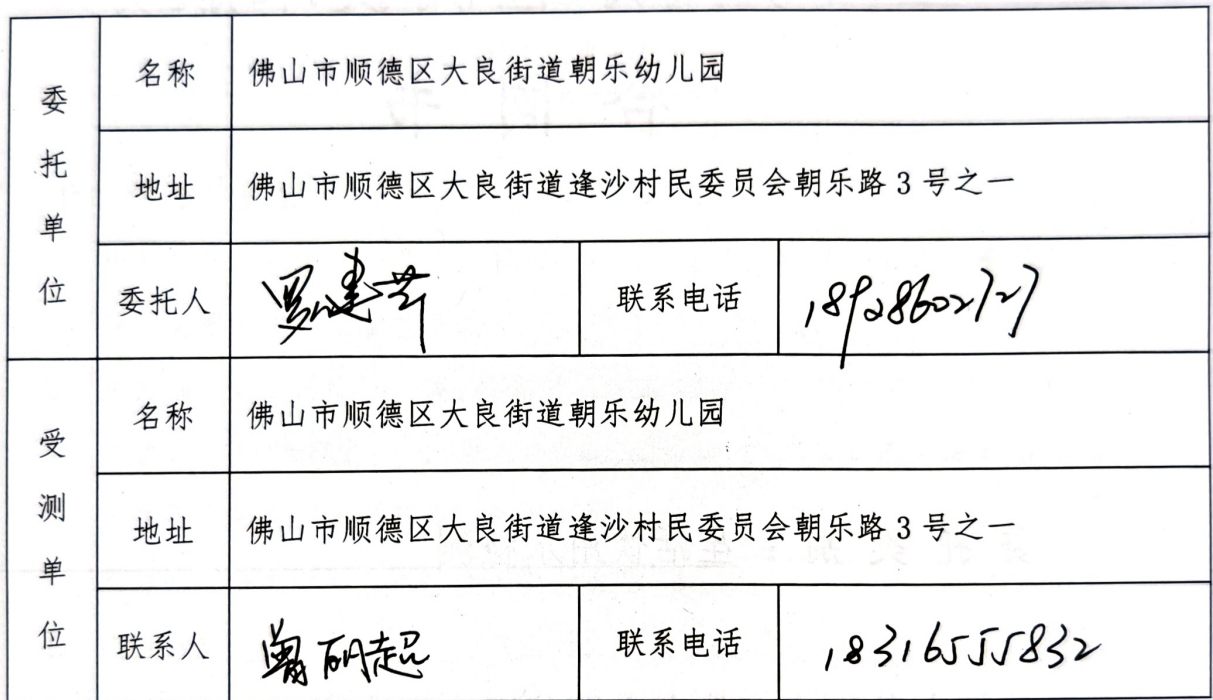 委托单位
名称 佛山市顺德区大良街道朝乐幼儿园
地址 佛山市顺德区大良街道逢沙村民委员会朝乐路3号之一
委托人 联系电话 18928602727
受测单位
名称 佛山市顺德区大良街道朝乐幼儿园
地址 佛山市顺德区大良街道逢沙村民委员会朝乐路3号之一
联系人 联系电话 18316555832